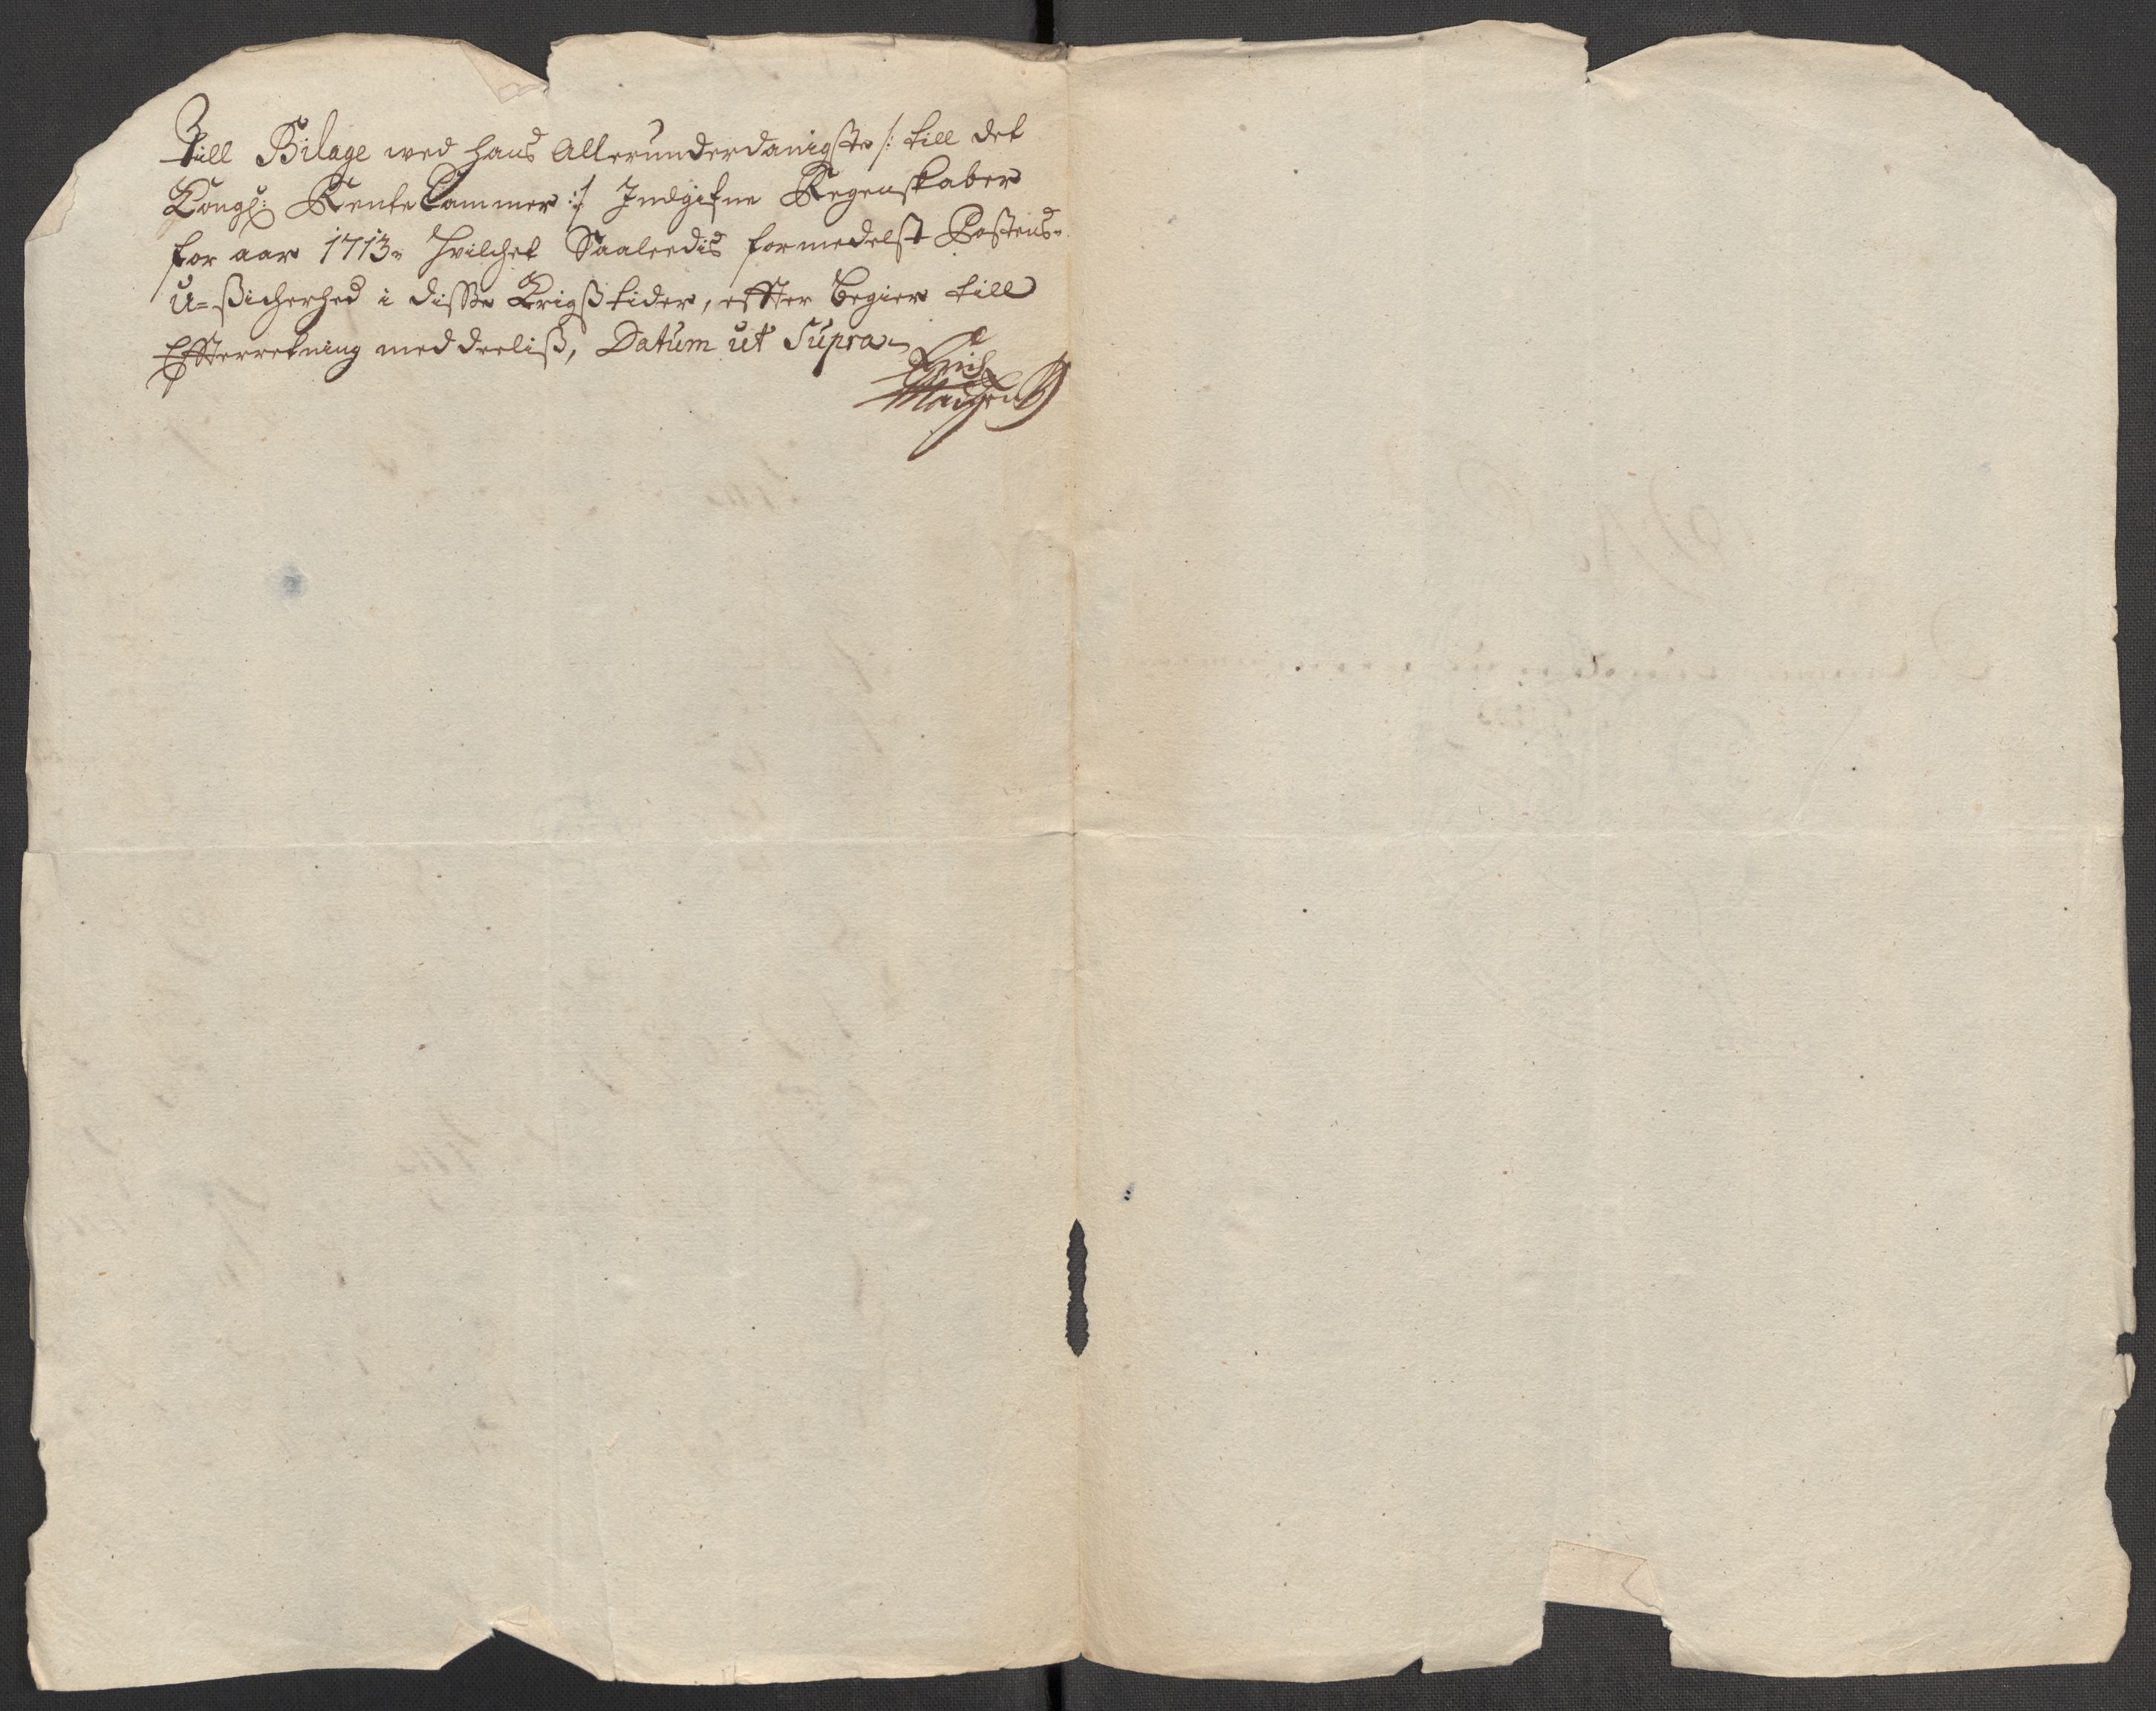 till Bilage wed hans Allerunderdanigste /: till det
Kongl: Rente Cammer :/ Indgifne Regenskaber
for aar 1713. Hvilchet Saaleedis formedelst Postens
U-ßicherhed i disse Krigßtider, effter begier till
Effterretning meddeeliß, Datum ut Supra
Erich